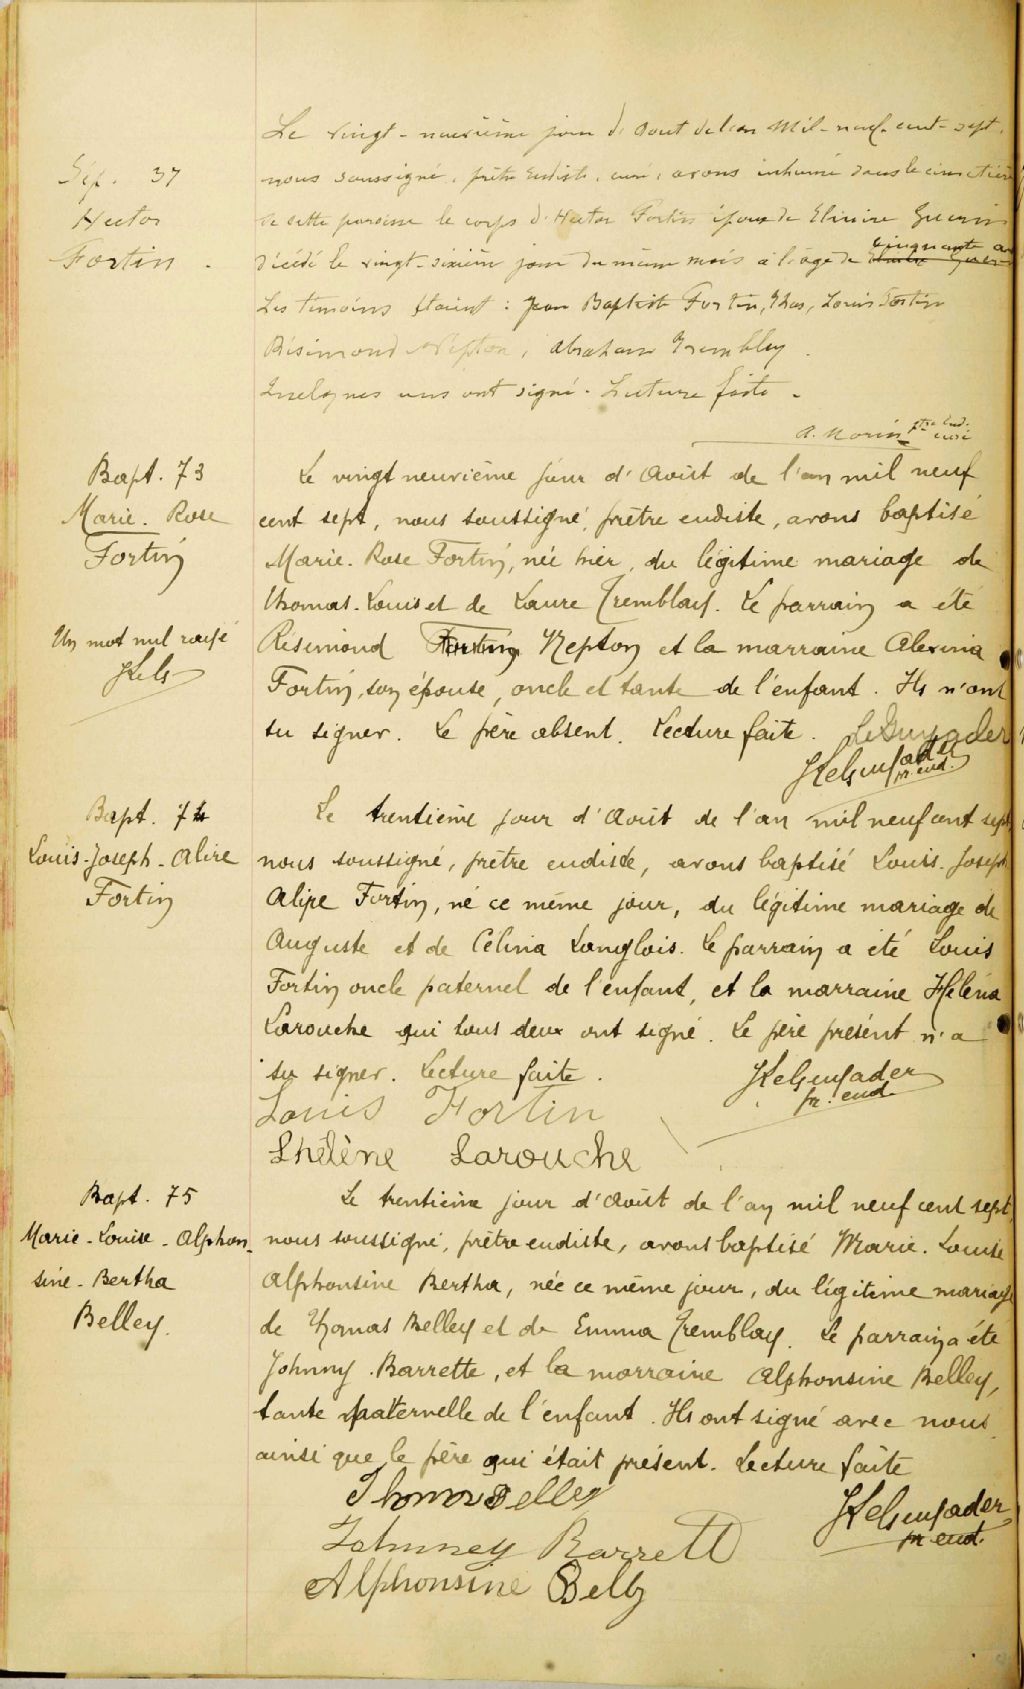 Le vingt-neuvième jour d'Aout de l'an Mil-neuf-cent-sept,
nous soussigné, prêtre Eudiste, curé, avons inhumé dans le cimetière
de cette paroisse le corps d'Hector Fortin époux de Elmire Guerin
décédé le vingt-sixième jour du même mois à l'âge de cinquante an
Les témoins étaient : Jean Baptiste Fortin, Ths, Louis Fortin
Résimond Nepton, Abraham Tremblay.
Quelques uns ont signé. Lecture faite.
A. Morin ptre Eud.
curé
Sép. 37
Hector
Fortin.
Bapt. 73
Marie. Rose
Fortin
Un mot nul rayé
Le vingt neuvième jour d'Août de l'an mil neuf
cent sept, nous soussigné, prêtre eudiste, avons baptisé
Marie. Rose Fortin, née hier, du légitime mariage de
Thomas. Louis et de Laure Tremblay. Le parrain a été
Résimond Fortin Nepton et la marraine Alexina
Fortin, son épouse, oncle et tante de l'enfant. Ils n'ont
su signer. Le père absent. Lecture faite. LeGuyader
JLeGuyader
pr. eud.
Bapt. 74
Louis-Joseph-Alipe
Fortin
Le trentième jour d'Août de l'an mil neuf cent sept
nous soussigné, prêtre eudiste, avons baptisé Louis. Joseph
Alipe Fortin, né ce même jour, du légitime mariage de
Auguste et de Célina Langlois. Le parrain a été Louis
Fortin oncle paternel de l'enfant, et la marraine Héléna
Larouche qui tous deux ont signé. Le père présent n'a
su signer. Lecture faite.
JLeGuyader
pr. eud.
Louis Fortin
Lhélène Larouche
Bapt. 75
Marie-Louise-Alphon-
sine-Bertha
Belley.
Le trentième jour d'Août de l'an mil neuf cent sept,
nous soussigné, prêtre eudiste, avons baptisé Marie. Louise
Alphonsine Bertha, née ce même jour, du légitime mariage
de Thomas Belley et de Emma Tremblay. Le parrain a été
Johnny Barrette, et la marraine Alphonsine Belley,
tante paternelle de l'enfant. Ils ont signé avec nous
ainsi que le père qui était présent. Lecture faite
Thomas Belley
JLeGuyader
pr. eud.
Johnney Barrett
Alphonsine Belly